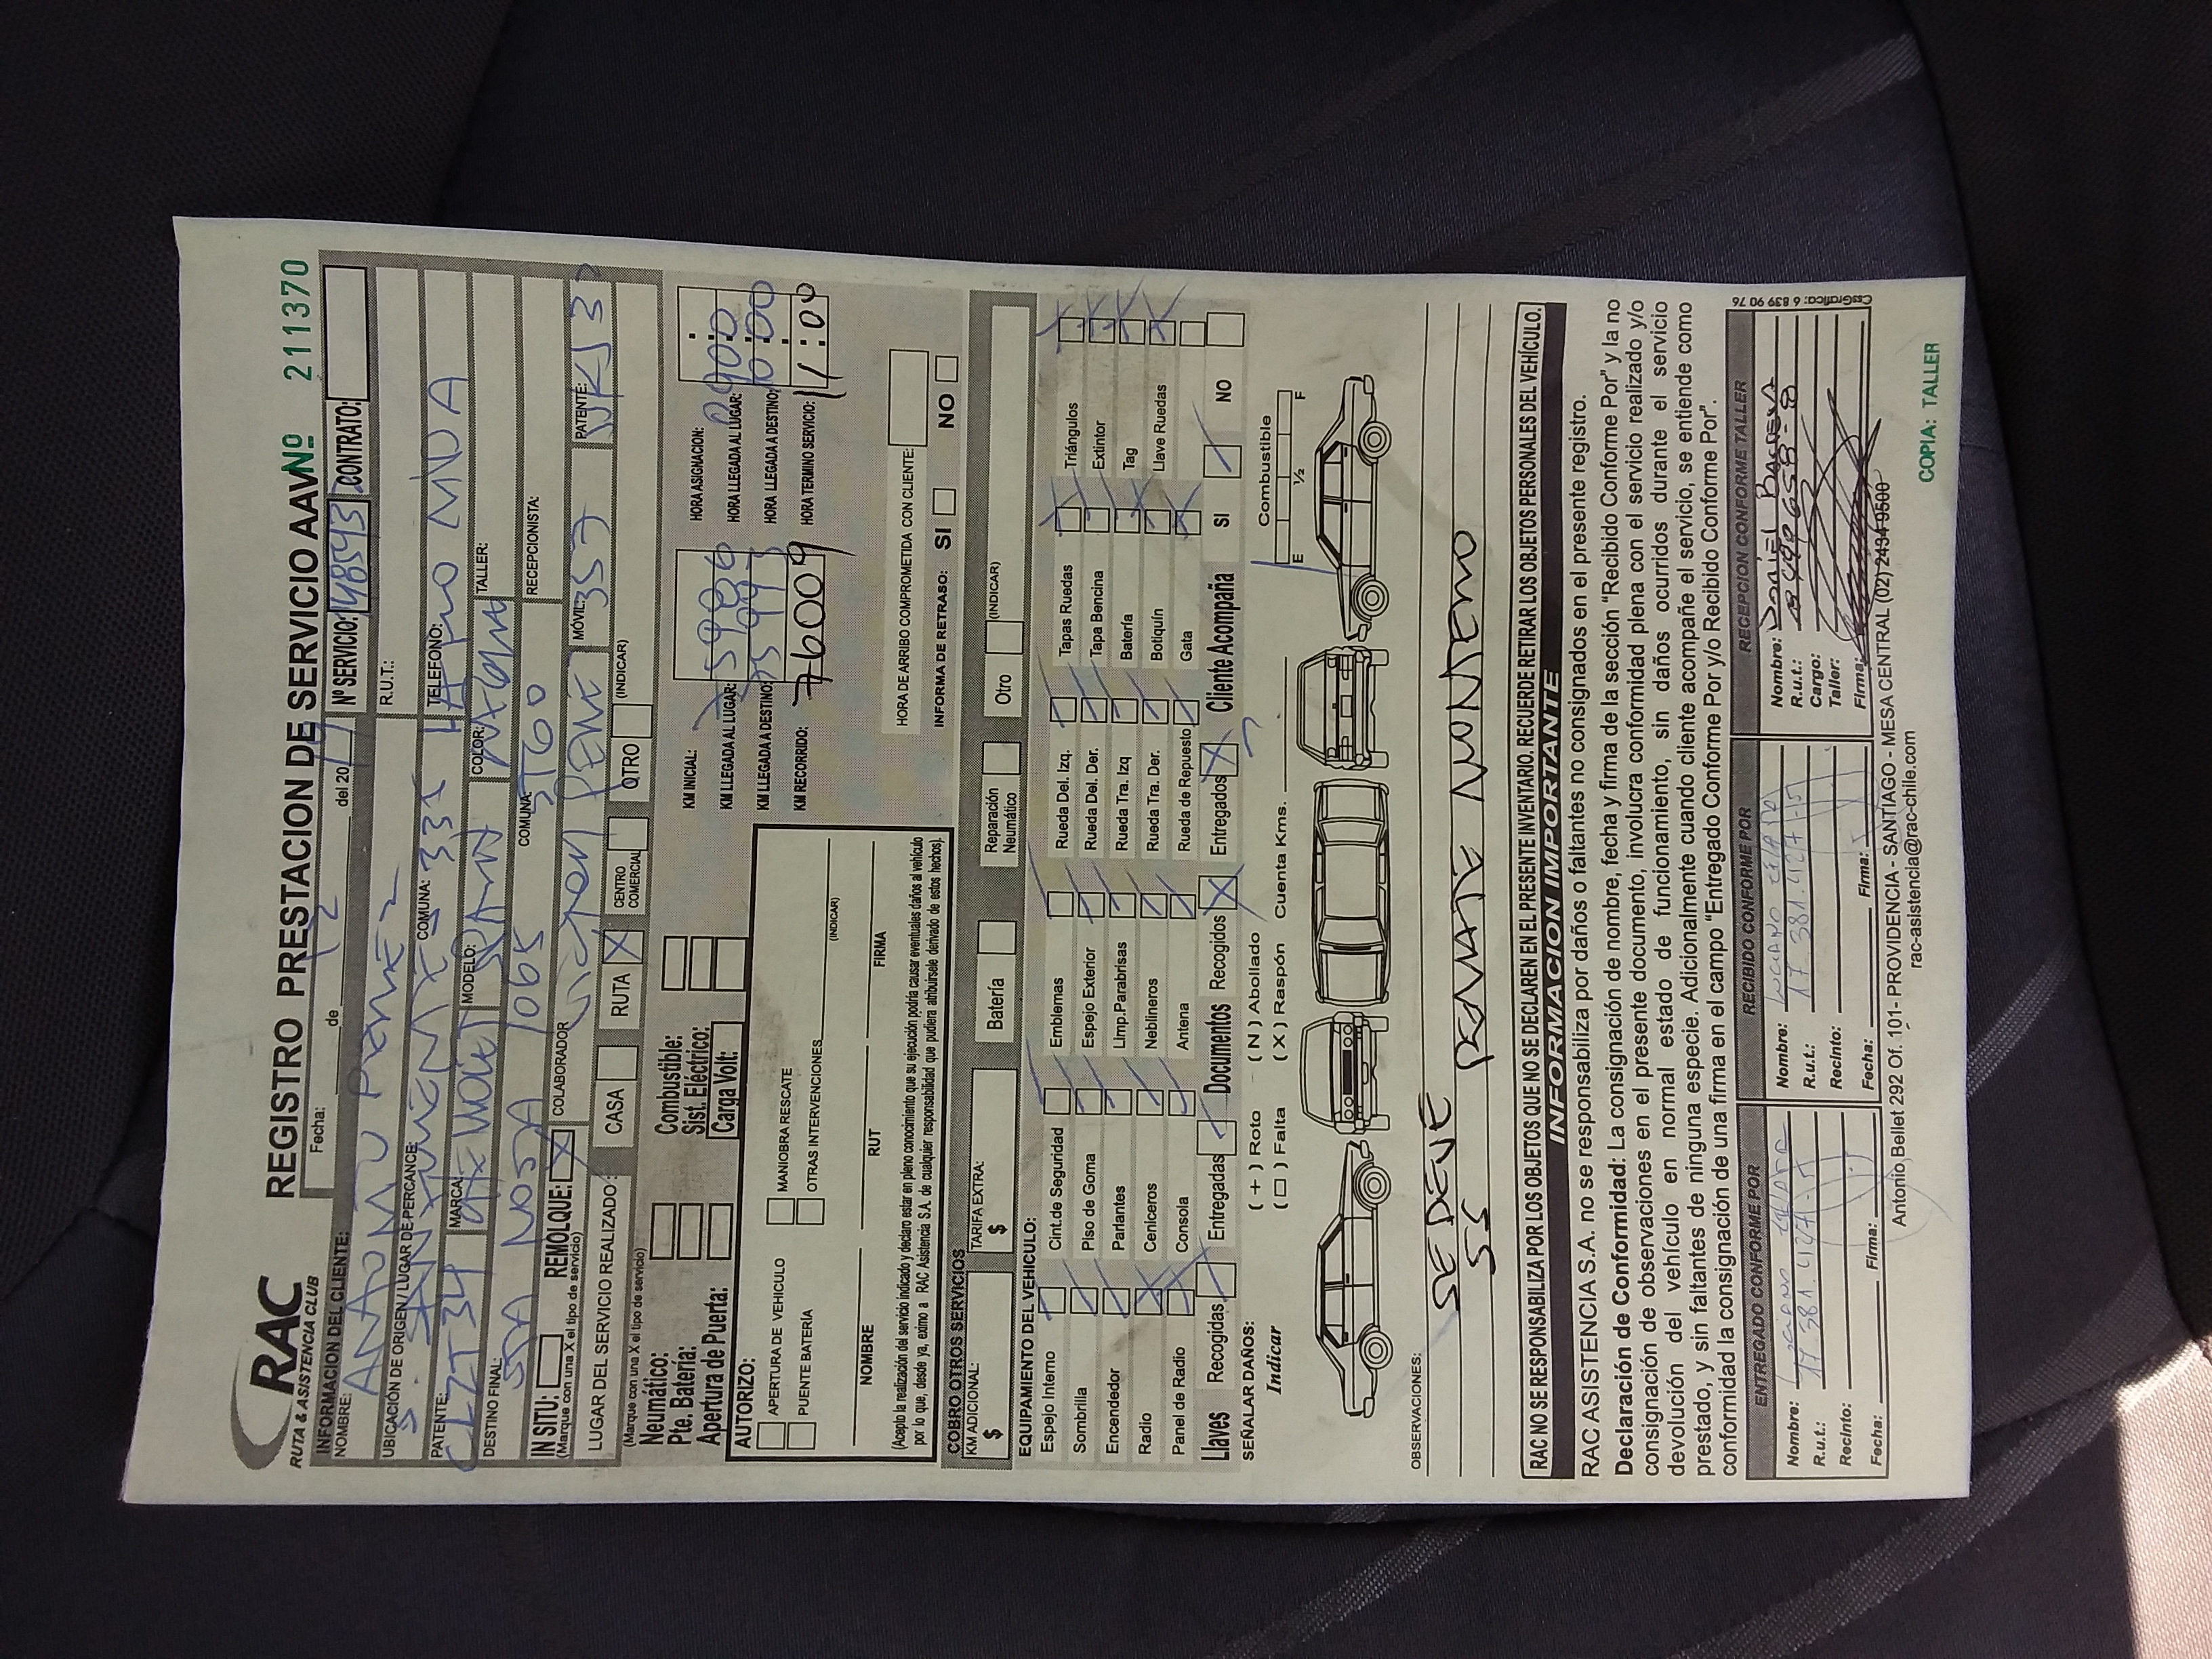 RAC
RUTA & ASISTENCIA CLUB
REGISTRO PRESTACION DE SERVICIO AAVV Nº 211370
Fecha: 12 de del 20
Nº SERVICIO: CONTRATO:
INFORMACION DEL CLIENTE:
NOMBRE:
R.U.T.:
UBICACIÓN DE ORIGEN / LUGAR DE PERCANCE:
COMUNA: TELEFONO:
PATENTE: MARCA: MODELO: COLOR: TALLER:
DESTINO FINAL: COMUNA: STGO RECEPCIONISTA:
IN SITU: REMOLQUE: X COLABORADOR MÓVIL: 357 PATENTE:
(Marque con una X el tipo de servicio)
LUGAR DEL SERVICIO REALIZADO: CASA RUTA X CENTRO COMERCIAL OTRO (INDICAR)
(Marque con una X el tipo de servicio)
Neumático: Combustible:
Pte. Batería: Sist. Eléctrico:
Apertura de Puerta: Carga Volt:
KM INICIAL: HORA ASIGNACION:
KM LLEGADA AL LUGAR: 75986 HORA LLEGADA AL LUGAR: 0900
KM LLEGADA A DESTINO: HORA LLEGADA A DESTINO:
KM RECORRIDO: 76009 HORA TERMINO SERVICIO: 11:00
AUTORIZO:
APERTURA DE VEHICULO MANIOBRA RESCATE
PUENTE BATERÍA OTRAS INTERVENCIONES
(INDICAR)
NOMBRE RUT FIRMA
(Acepto la realización del servicio indicado y declaro estar en pleno conocimiento que su ejecución podría causar eventuales daños al vehículo
por lo que, desde ya, eximo a RAC Asistencia S.A. de cualquier responsabilidad que pudiera atribuírsele derivado de estos hechos).
HORA DE ARRIBO COMPROMETIDA CON CLIENTE:
INFORMA DE RETRASO: SI NO
COBRO OTROS SERVICIOS
KM ADICIONAL: $ TARIFA EXTRA: $ Batería Reparación Neumático Otro (INDICAR)
EQUIPAMIENTO DEL VEHICULO:
Espejo Interno Cint.de Seguridad Emblemas Rueda Del. Izq. Tapas Ruedas Triángulos
Sombrilla Piso de Goma Espejo Exterior Rueda Del. Der. Tapa Bencina Extintor
Encendedor Parlantes Limp.Parabrisas Rueda Tra. Izq Batería Tag
Radio Ceniceros Neblineros Rueda Tra. Der. Botiquín Llave Ruedas
Panel de Radio Consola Antena Rueda de Repuesto Gata
Llaves Recogidas Entregadas Documentos Recogidos X Entregados X Cliente Acompaña SI NO
SEÑALAR DAÑOS: ( + ) Roto ( N ) Abollado
Indicar ( □ ) Falta ( X ) Raspón Cuenta Kms. Combustible E ½ F
OBSERVACIONES:
SE DEVE REMATE MONTERO
55
RAC NO SE RESPONSABILIZA POR LOS OBJETOS QUE NO SE DECLAREN EN EL PRESENTE INVENTARIO. RECUERDE RETIRAR LOS OBJETOS PERSONALES DEL VEHÍCULO.
INFORMACION IMPORTANTE
RAC ASISTENCIA S.A. no se responsabiliza por daños o faltantes no consignados en el presente registro.
Declaración de Conformidad: La consignación de nombre, fecha y firma de la sección “Recibido Conforme Por” y la no
consignación de observaciones en el presente documento, involucra conformidad plena con el servicio realizado y/o
devolución del vehículo en normal estado de funcionamiento, sin daños ocurridos durante el servicio
prestado, y sin faltantes de ninguna especie. Adicionalmente cuando cliente acompañe el servicio, se entiende como
conformidad la consignación de una firma en el campo “Entregado Conforme Por y/o Recibido Conforme Por”.
ENTREGADO CONFORME POR
Nombre: Luciano
R.u.t.: 17.381.427-5
Recinto:
Fecha: Firma:
RECIBIDO CONFORME POR
Nombre: Luciano
R.u.t.: 17.381.427-5
Recinto:
Fecha: Firma:
RECEPCION CONFORME TALLER
Nombre: Daniel
R.u.t.:
Cargo:
Taller:
Firma:
CssGrafica: 6 839 90 76
Antonio Bellet 292 Of. 101- PROVIDENCIA - SANTIAGO - MESA CENTRAL (02) 2434 9500
rac-asistencia@rac-chile.com
COPIA: TALLER